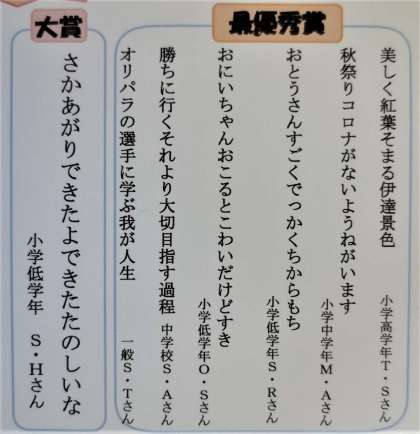 最優秀賞
美しく紅葉そまる伊達景色
小学高学年T・Sさん
秋祭りコロナがないようねがいます
小学中学年M・Aさん
おとうさんすごくでっかくちからもち
小学低学年S・Rさん
おにいちゃんおこるとこわいだけどすき
小学低学年O・Sさん
勝ちに行くそれより大切目指す過程
中学校S・Aさん
オリパラの選手に学ぶ我が人生
一般S・Tさん
大賞
さかあがりできたよできたたのしいな
小学低学年 S・Hさん